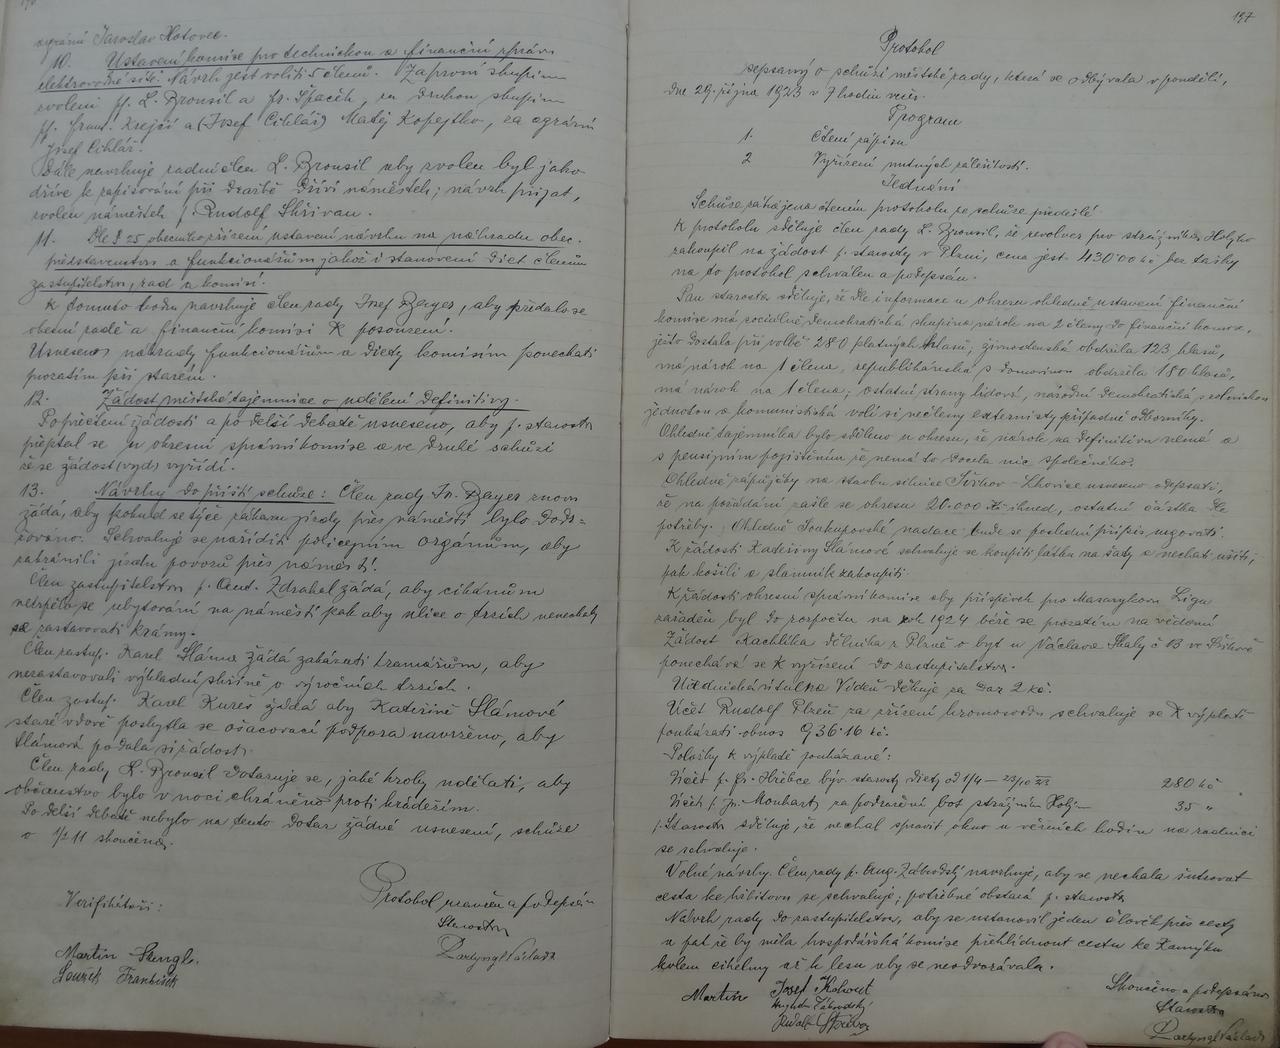 agrární Jaroslav Hotovec.
10. Ustavení komise pro technickou a finanční správu
elektrovodné sítě. Návrh jest voliti 5 členů. Za první skupinu
zvoleni pp. L. Bronsil a Jr. Špaček, za druhou skupinu
pp. Frant. Krejčí a (Josef Cihlář) Matěj Kopejtko, za agrární
Josef Cihlář.
Dále navrhuje radní člen L. Bronsil aby zvolen byl jako-
dříve k zapisování při dražbě dříví náměstek; návrh přijat,
zvolen náměstek p. Rudolf Skřivan.
11. Dle § 25 obecního zřízení ustavení návrhu na náhradu obec.
představenstvu a funkcionářům jakož i stanovení diet členům
zastupitelstva, rad a komisí.
K tomuto bodu navrhuje člen rady Josef Bayer, aby předalo se
obecní radě a finanční komisi k posouzení.
Usneseno náhrady funkcionářům a diety komisím ponechati
prozatím při starém.
12. Žádost městského tajemníka o udělení definitivy.
Po přečtení žádosti a po delší debatě usneseno, aby p. starosta
přeptal se u okresní správní komise a ve druhé schůzi
že se žádost (vyd) vyřídí.
13. Návrhy do příští schůze: Člen rady Jr. Bayer znovu
žádá, aby pokud se týče zákazu jízdy přes náměstí bylo dodr-
žováno. Schvaluje se naříditi policejním orgánům, aby
zabránili jízdu povozů přes náměstí.
Člen zastupitelstva p. Ant. Zdrahal žádá, aby cikánům
netrpělo se ubytování na náměstí pak aby ulice o trzích nenechaly
se zastavovati krámy.
Člen zastup. Karel Sláma žádá zakázati kramářům, aby
nezastavovali výkladní skříně o výročních trzích.
Člen zastup. Karel Kureš žádá aby Kateřině Slámové
staré vdově poskytla se ošacovací podpora navrženo, aby
Slámová podala si žádost.
Člen rady L. Bronsil dotazuje se, jaké kroky udělati, aby
občanstvo bylo v noci chráněno proti krádežím.
Po delší debatě nebylo na tento dotaz žádné usnesení, schůze
o 1/2 11 skončena.
Protokol uzavřen a podepsán
Verifikátoři:
Starosta
Partyngl Václav
Martin Šlengl.
Součék František
197
Protokol
sepsaný o schůzi městské rady, která se odbývala v pondělí,
dne 29. října 1923 v 7 hodin večer.
Program
1. Čtení zápisu
2 Vyřízení nutných záležitostí.
Jednání
Schůze zahájena čtením protokolu ze schůze předešlé.
K protokolu sděluje člen rady L. Bronsil, že revolver pro strážníka Holého
zakoupil na žádost p. starosty v Plzni, cena jest 430'00 kč bez tašky
na to protokol schválen a podepsán.
Pan starosta sděluje, že dle informace u okresu ohledně ustavení finanční
komise má sociálně demokratická skupina nárok na 2 členy do finanční komise,
ježto dostala při volbě 280 platných hlasů, živnostenská obdržela 123 hlasů,
má nárok na 1 člena, republikánská s domovinou obdržela 180 hlasů,
má nárok na 1 člena; ostatní strany lidová, národní demokratická s rolnickou
jednotou a komunistická volí si nečleny externisty případně odborníky.
Ohledně tajemníka bylo sděleno u okresu, že nárok na definitivu nemá a
s pensijním pojištěním že nemá to docela nic společného.
Ohledně zápůjčky na stavbu silnice Širkov - Lhovice usneseno odepsati,
že na požádání zašle se okresu 20.000 Kč ihned, ostatní částka dle
potřeby. Ohledně Soukupovské nadace bude se poslední přípis urgovati.
K žádosti Kateřiny Slámové schvaluje se koupiti látku na šaty a nechati ušíti,
pak košili a slamník zakoupiti.
K žádosti okresní správní komise aby příspěvek pro Masarykovu Ligu
zařaděn byl do rozpočtu na rok 1924 béře se prozatím na vědomí
Žádost Kachlíka dělníka z Plzně o byt u Václava Skaly č 13 ve Švihově
ponechává se k vyřízení do zastupitelstva.
Účet Rudolf Plzeň za zřízení hromosvodu schvaluje se k výplatě
poukázati obnos 936·16 kč.
Položky k výplatě poukázané:
Účet p. Fr. Hřebce býv. starosty diety od 1/4 — 23/10 23 280 kč
Účet p. Jr. Mouhart za podražení bot strážníku Holý — 35 "
p. Starosta sděluje, že nechal spravit okno u věžních hodin na radnici
se schvaluje.
Volné návrhy. Člen rady p. Aug. Zábrodský navrhuje, aby se nechala šutrovat
cesta ke hřbitovu se schvaluje; potřebné obstará p. starosta
Návrh rady do zastupitelstva, aby se ustanovil jeden člověk přes cesty
a pak že by měla hospodářská komise přehlédnout cestu ke Kamýku
kolem cihelny až k lesu aby se neodvozávala.
Skončeno a podepsáno
Martin Josef Kohout
Starosta
Rudolf Skřivan
Partyngl Václav